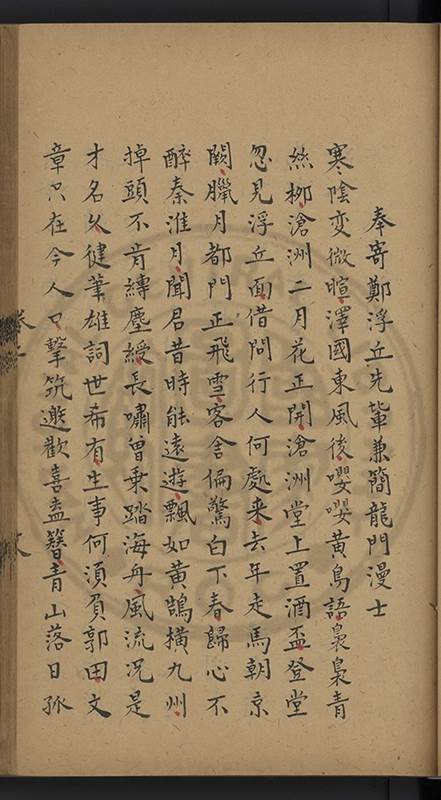 奉寄鄭浮丘先輩兼簡龍門漫士
寒陰変微暄澤國東風後嚶嚶黄鳥語裊裊青
絲栁滄洲二月花正開滄洲堂上置酒盃登堂
忽見浮丘面借問行人何處来去年走馬朝京
闕臘月都門正飛雪客舎偏驚白下春歸心不
醉秦淮月聞君昔時能遠遊飄如黄鵠横九州
掉頭不肯縛塵綬長嘯曽乗踏海舟風流况是
才名乆健筆雄詞世希有生事何須負郭田文
章只在今人口擊筑邀歡喜盍簪青山落日孤